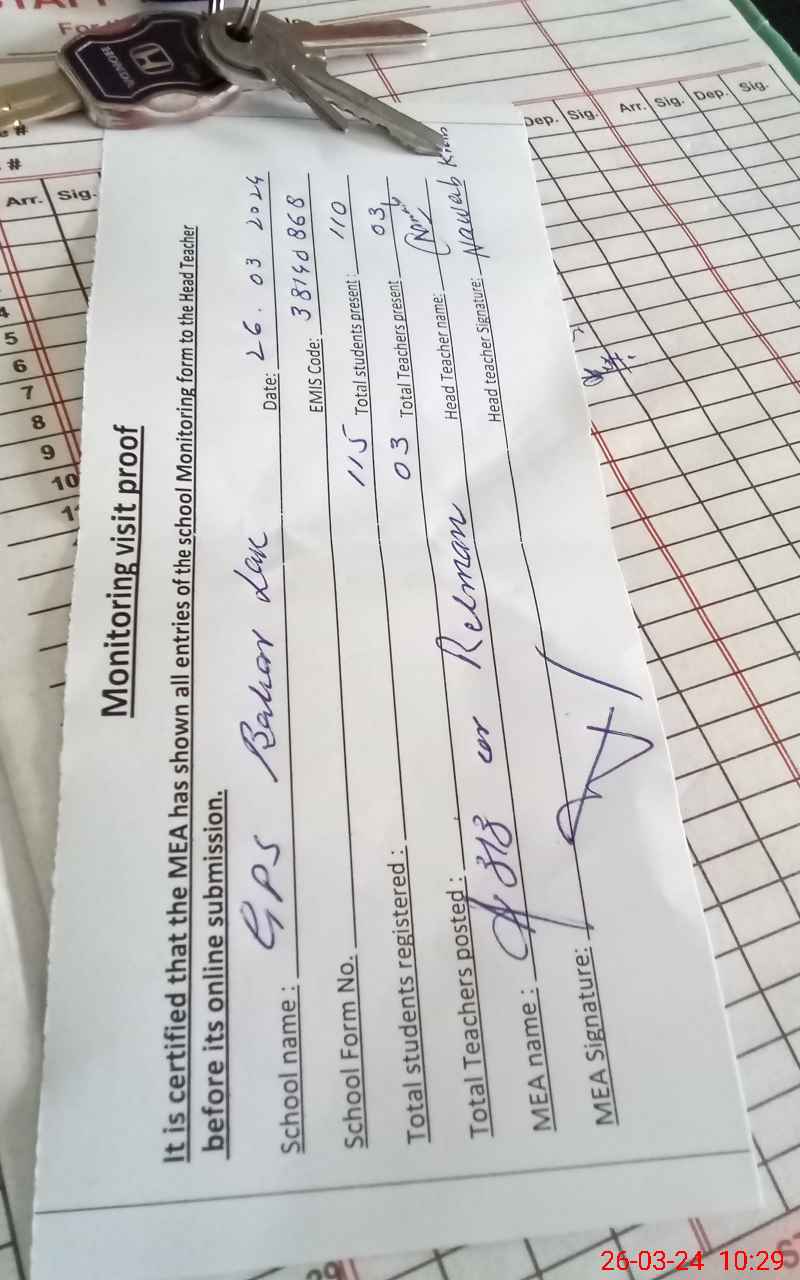 Monitoring visit proof
It is certified that the MEA has shown all entries of the school Monitoring form to the Head Teacher
before its online submission.
School name : GPS Bahar Lak Date: 26. 03 2024
School Form No. EMIS Code:
Total students registered : 115 Total students present : 110
Total Teachers posted : 03 Total Teachers present 03
MEA name : Rehman Head Teacher name:
MEA Signature: Head teacher Signature: Nawab Khan
Arr. Sig.
Dep. Sig. Arr. Sig. Dep. Sig.
5
6
7
8
9
10
HONDA
26-03-24 10:29